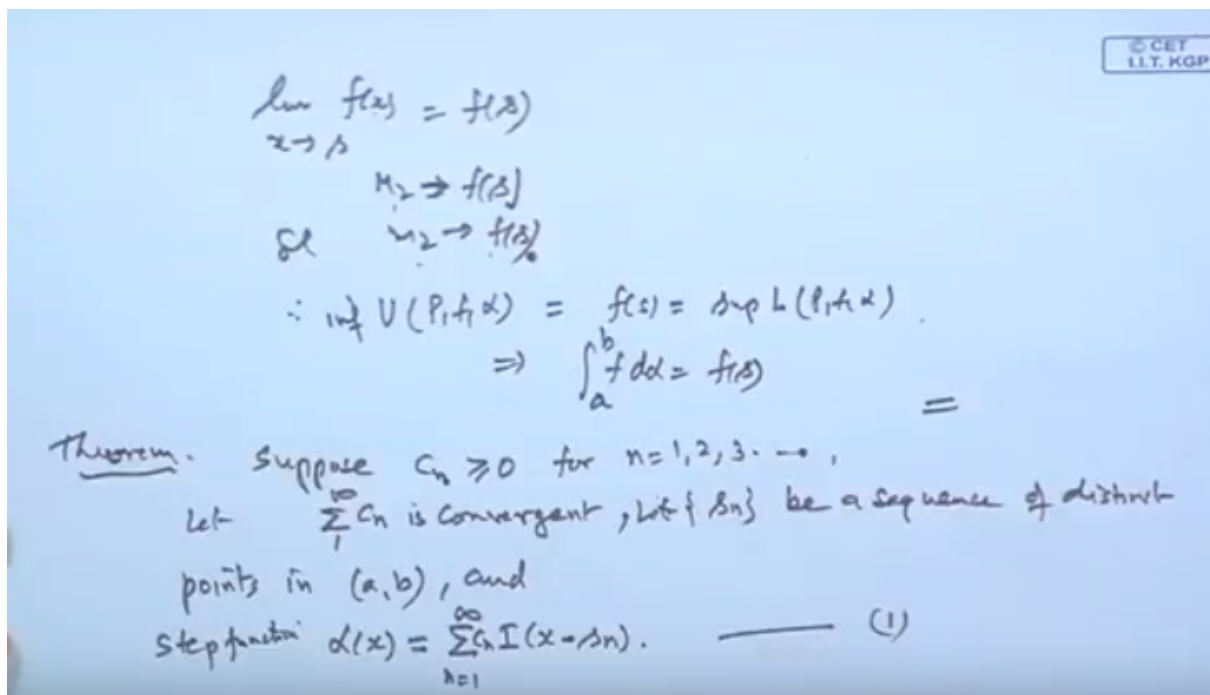 © CET
I.I.T. KGP
lim f(x) = f(s)
x→s
M₂ → f(s)
m₂ → f(s)
∴ inf U(P,f,α) = f(s) = sup L(P,f,α).
⇒ ∫ₐᵇ f dα = f(s)
=
Theorem. Suppose Cₙ ≥ 0 for n=1,2,3...,
Let ∑₁^∞ Cₙ is convergent, Let {sₙ} be a sequence of distinct
points in (a,b), and
step function α(x) = ∑ₙ₌₁^∞ Cₙ I(x-sₙ). —— (1)